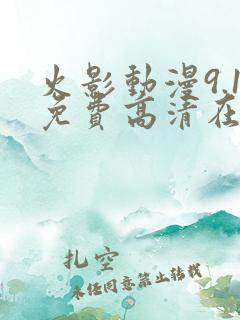 火影動漫9.1
免費高清在
扎空
未经同意禁止转载